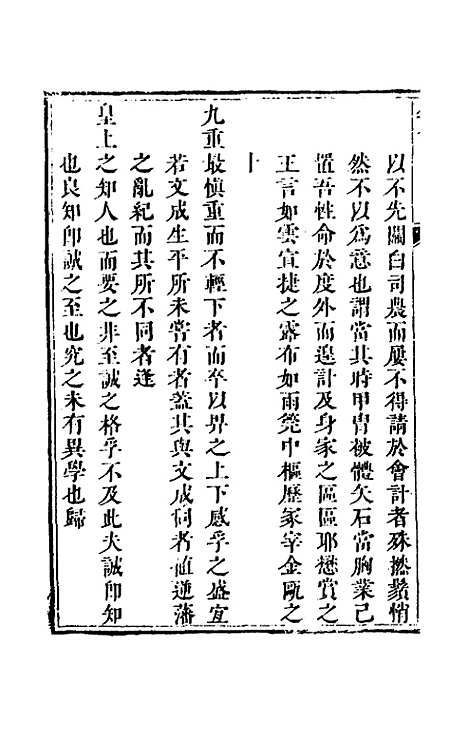 以不先關白司農而屢不得請於會計者殊撚鬚悄
然不以為意也謂當其時甲冑被體矢石當胸業已
置吾性命於度外而遑計及身家之區區耶懋賞之
王言如雲宣捷之露布如雨筦中樞歷冢宰金甌之
卜
九重最慎重而不輕下者而卒以畀之上下感孚之盛宜
若文成生平所未嘗有者蓋其與文成同者值逆藩
之亂紀而其所不同者逢
皇上之知人也而要之非至誠之格孚不及此夫誠卽知
也良知卽誠之至也究之未有異學也歸